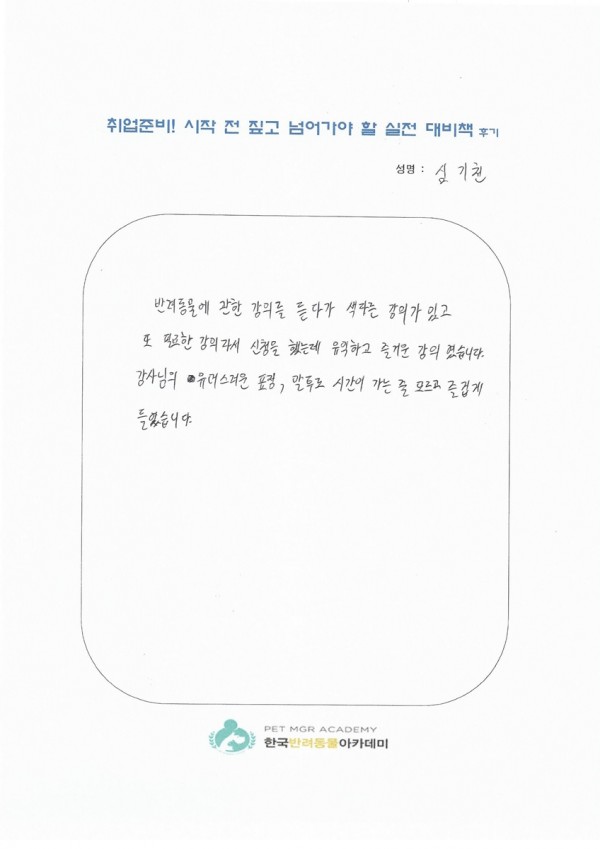 취업준비! 시작 전 짚고 넘어가야 할 실전 대비책 후기
성명 : 심기천
반려동물에 관한 강의를 듣다가 색다른 강의가 있고
또 필요한 강의라서 신청을 했는데 유익하고 즐거운 강의 였습니다.
강사님의 유머스러운 표정, 말투로 시간이 가는 줄 모르고 즐겁게
들었습니다.
PET MGR ACADEMY
한국반려동물아카데미